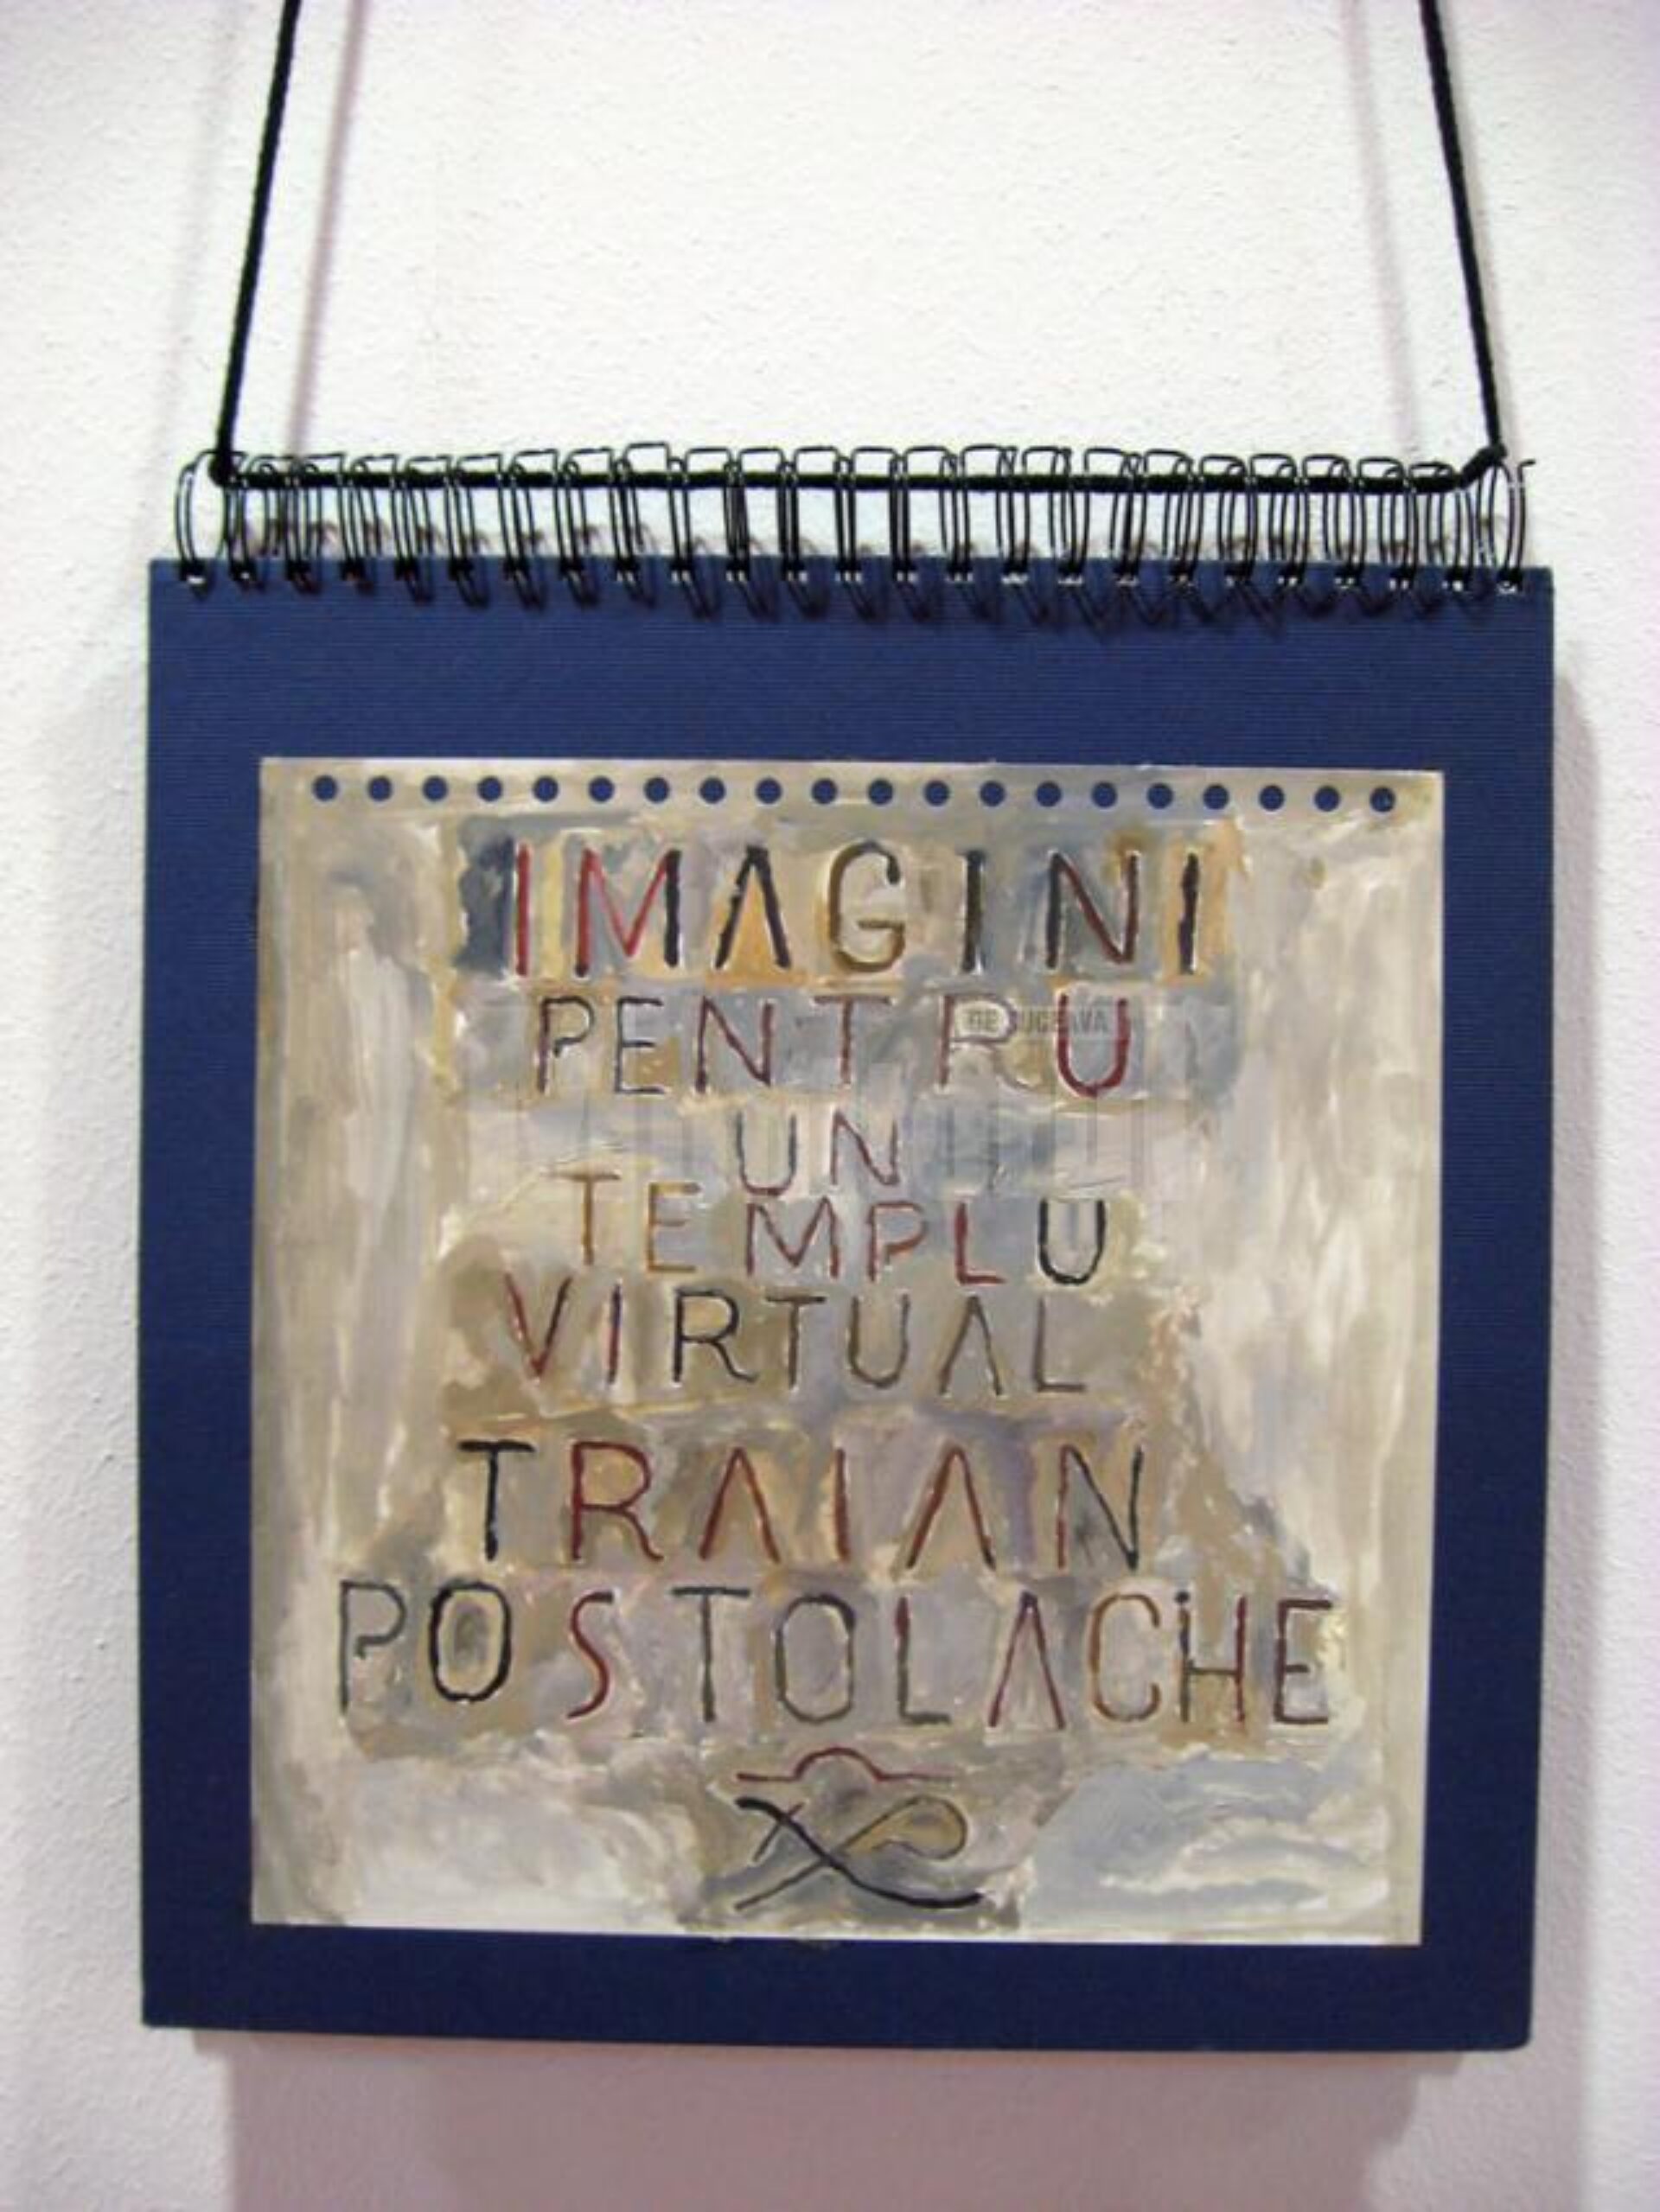 IMAGINI
PENTRU
UN
TEMPLU
VIRTUAL
TRAIAN
POSTOLACHE